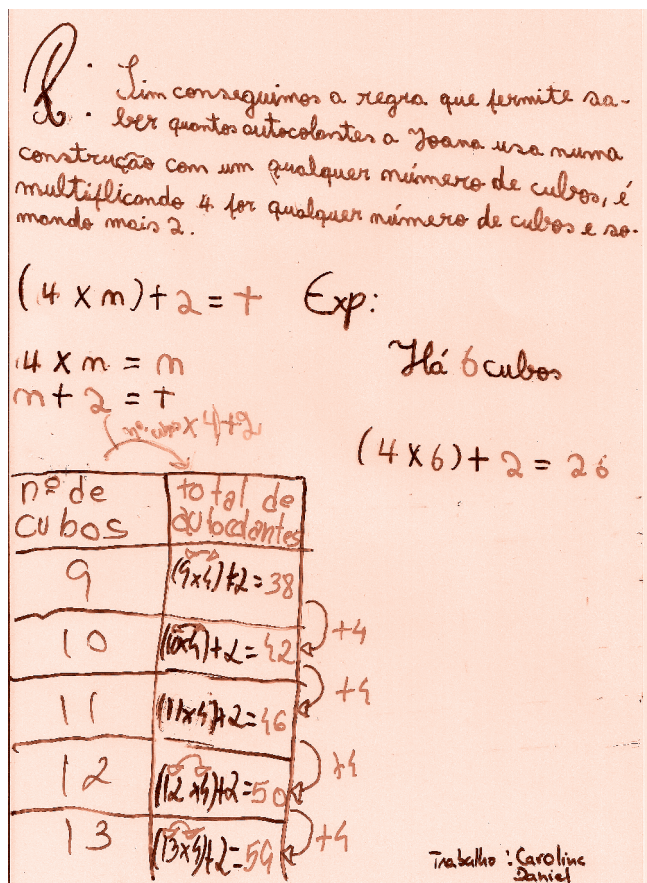 R: Sim conseguimos a regra que permite sa-
ber quantos autocolantes a Joana usa numa
construção com um qualquer número de cubos, é
multiplicando 4 por qualquer número de cubos e so-
mando mais 2.
(4 x n) + 2 = t Exp:
4 x n = n
n + 2 = t
Há 6 cubos
nº. cubos x 4 + 2
(4 x 6) + 2 = 26
nº de cubos
total de autocolantes
9 (9x4)+2=38
+4
10 (10x4)+2=42
+4
11 (11x4)+2=46
+4
12 (12x4)+2=50
+4
13 (13x4)+2=54
Trabalho: Carolina
Daniel